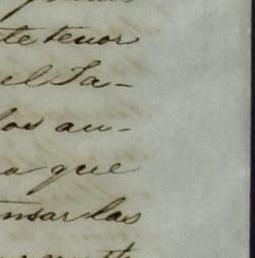 te tenor
el Sa-
los au-
o que
ensar las